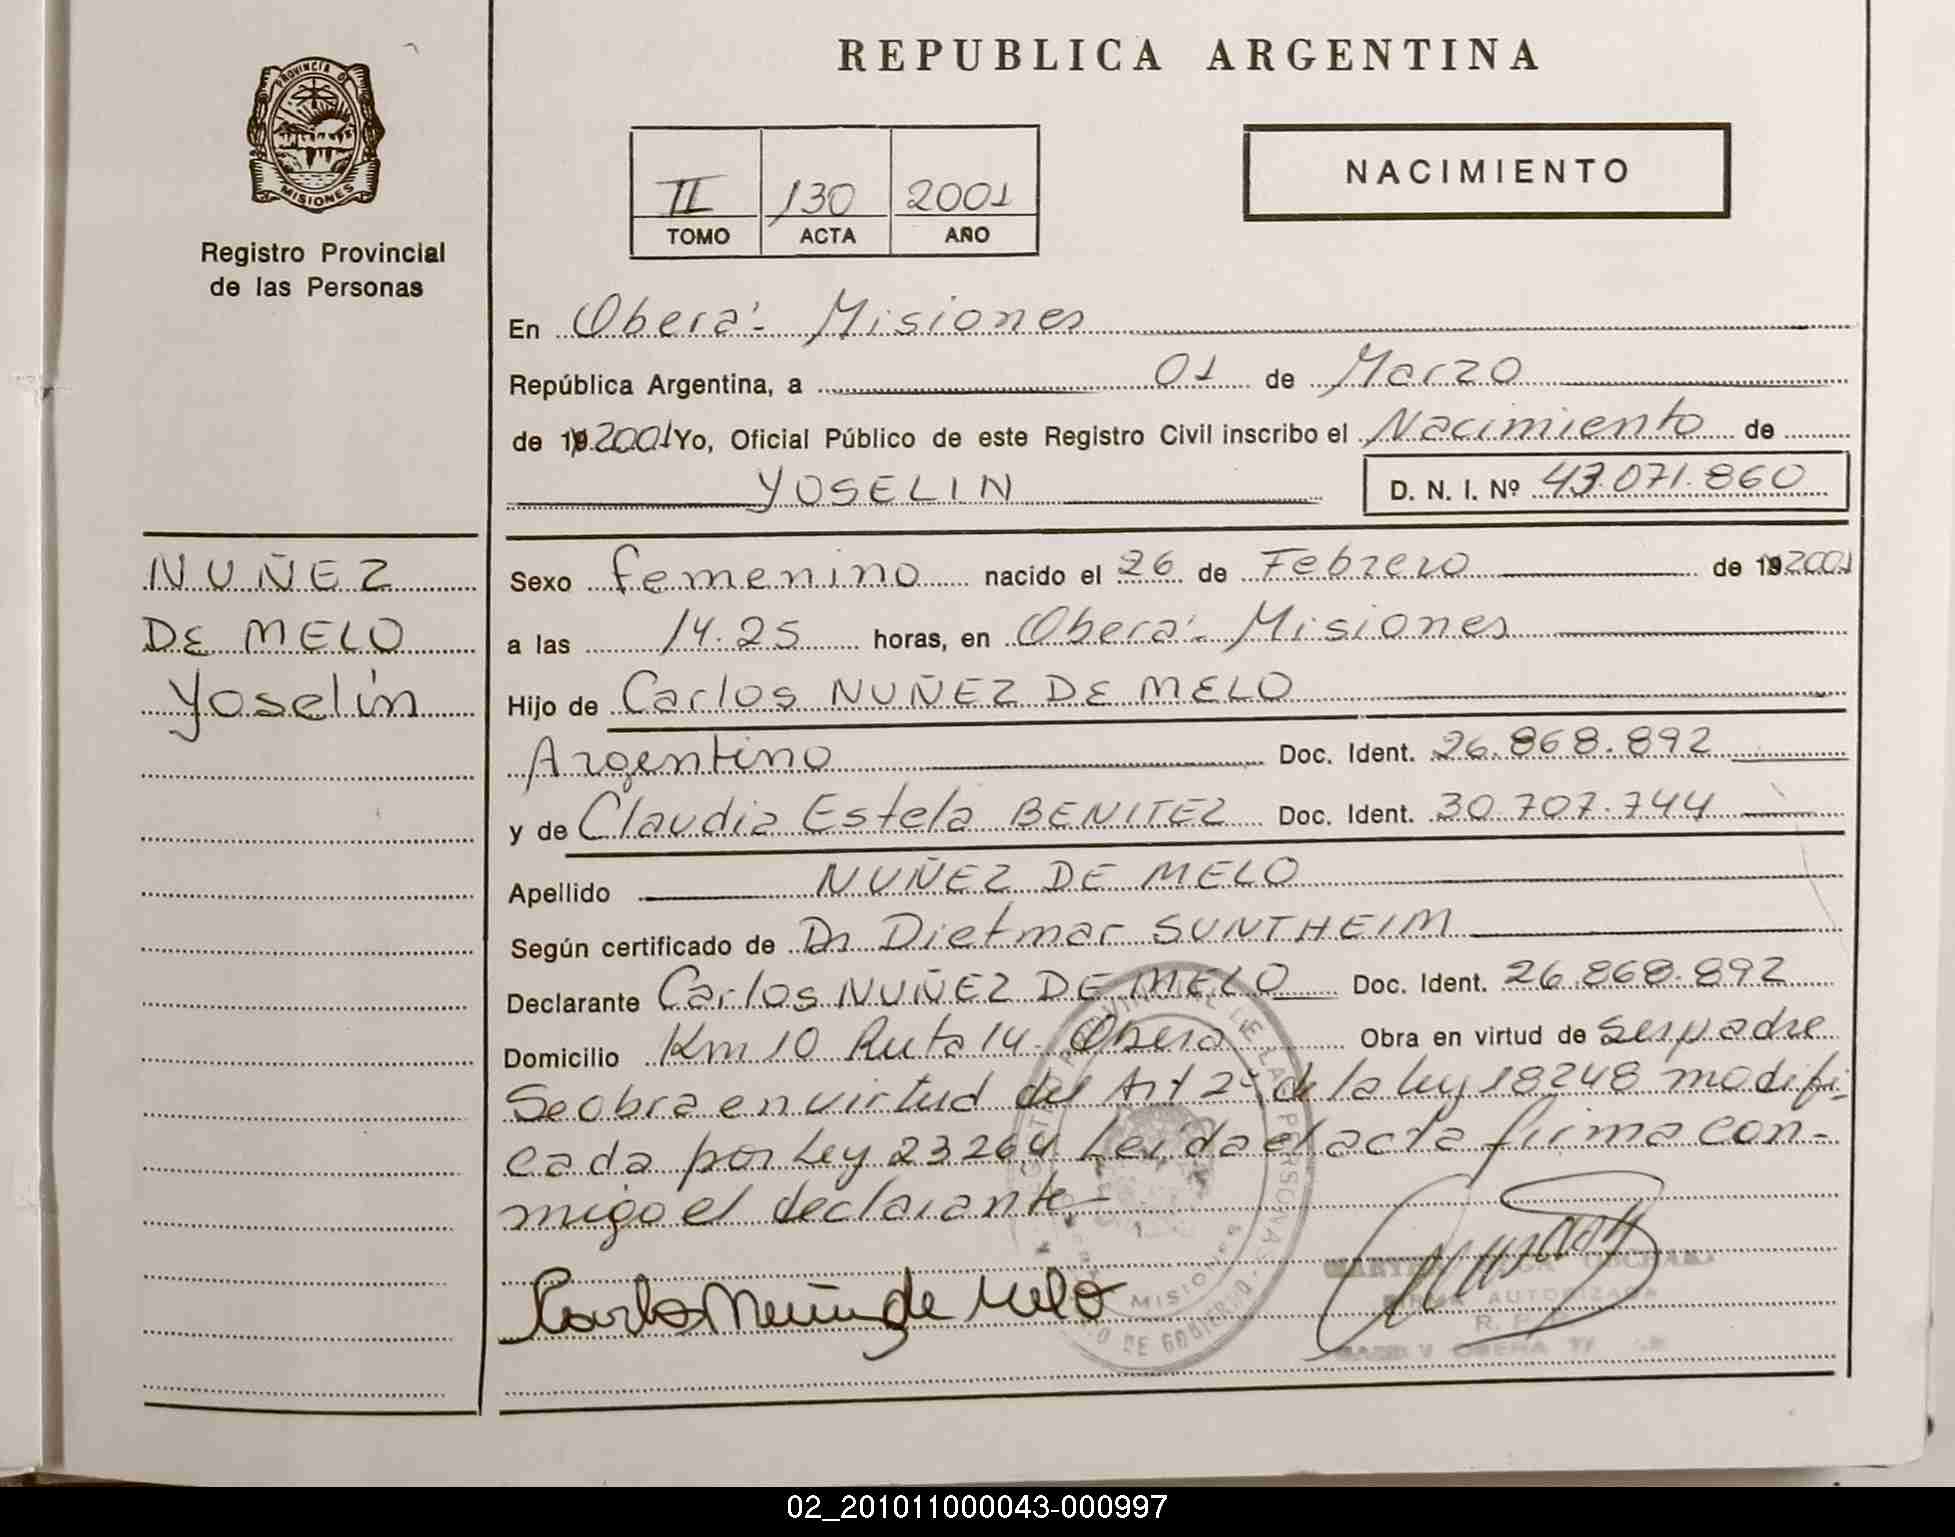 REPUBLICA ARGENTINA
PROVINCIA D
MISIONES
Registro Provincial
de las Personas
II 130 2001
TOMO ACTA AÑO
NACIMIENTO
En Oberá - Misiones
República Argentina, a 01 de Marzo
de 19 2001 Yo, Oficial Público de este Registro Civil inscribo el Nacimiento de
YOSELIN D. N. I. Nº 43.071.860
NUÑEZ
DE MELO
Yoselin
Sexo femenino nacido el 26 de Febrero de 19 2001
a las 14.25 horas, en Oberá - Misiones
Hijo de Carlos NUÑEZ DE MELO
Argentino Doc. Ident. 26.868.892
y de Claudia Estela BENITEZ Doc. Ident. 30.707.744
Apellido NUÑEZ DE MELO
Según certificado de Dr Dietmar SUNTHEIM
Declarante Carlos NUÑEZ DE MELO Doc. Ident. 26.868.892
Domicilio Km 10 Ruta 14 Obera Obra en virtud de ser padre
Se obra en virtud del Art 2º de la ley 18248 modifi-
cada por Ley 23264 Leida el acta firma con-
migo el declarante -
Carlos Nuñez de Melo
MISIONES
DE GOBIERNO
AUTORIZADA
OBERA
02_201011000043-000997